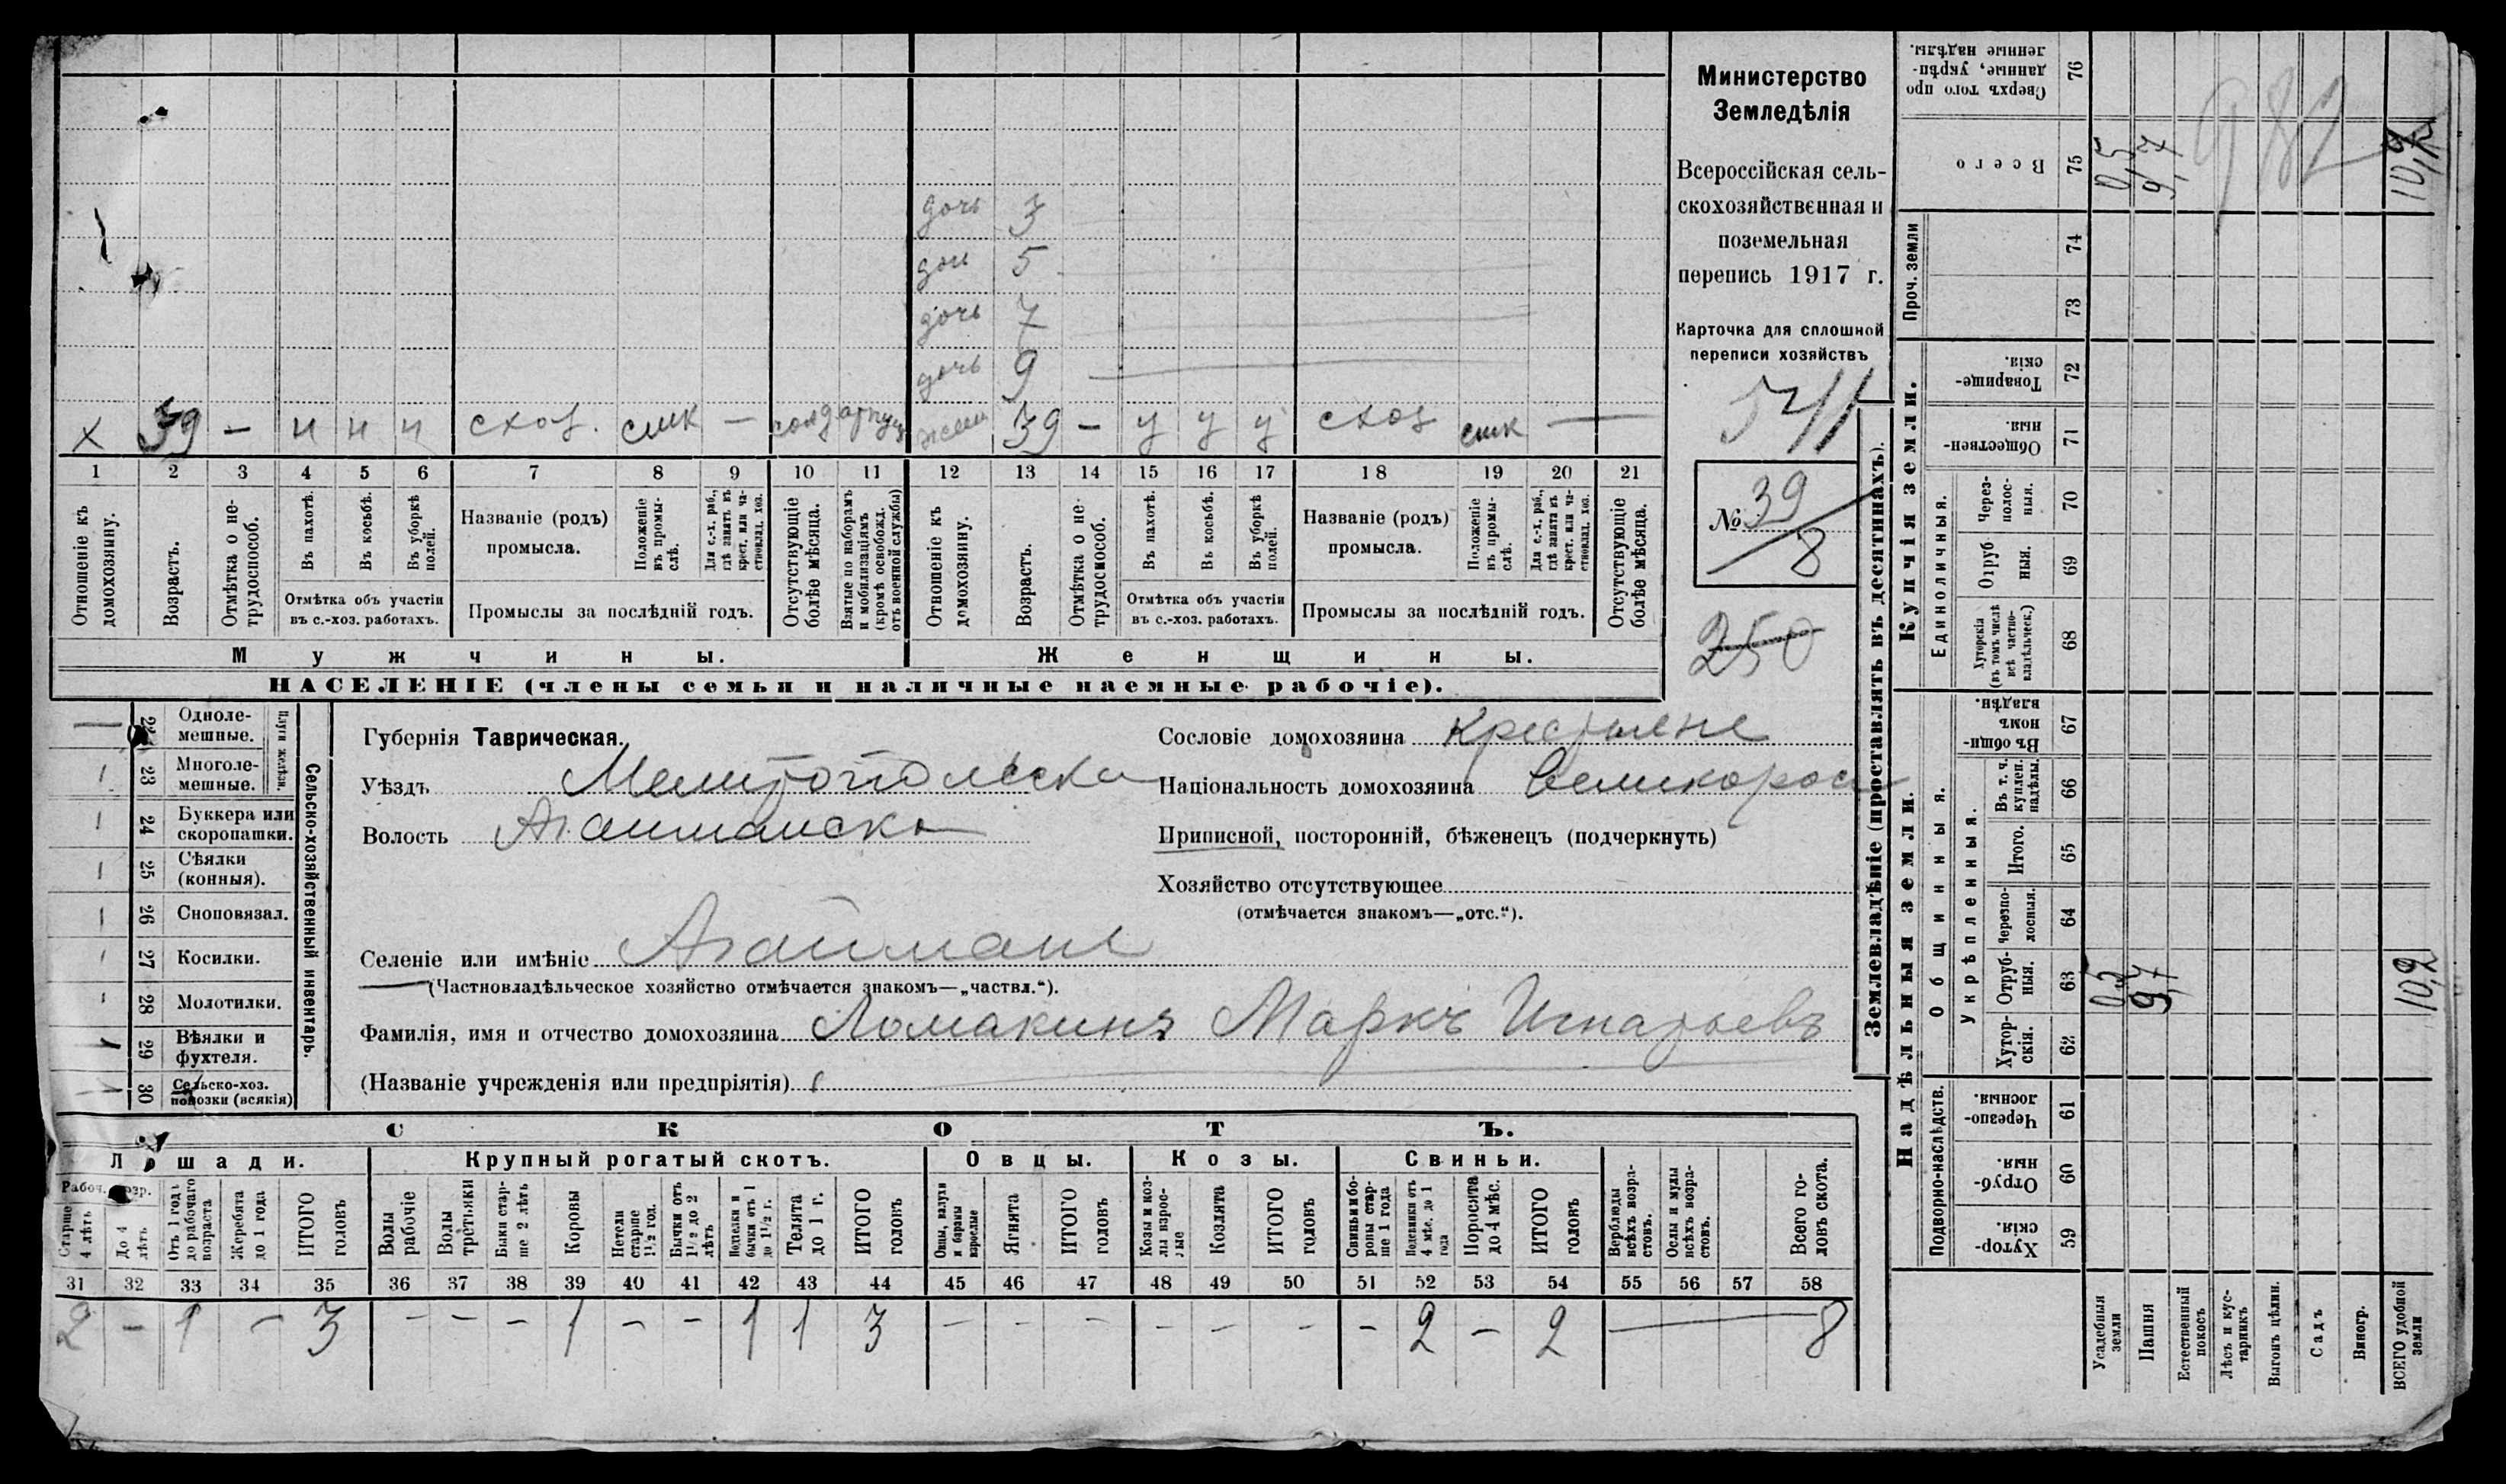 дочь 3
доч 5
дочь 7
дочь 9
х 39 — н н н схоз. — жена 39 — у у у схоз —
1 2 3 4 5 6 7 8 9 10 11 12 13 14 15 16 17 18 19 20 21
Отношеніе къ домохозяину.
Возрастъ.
Отмѣтка о нетрудоспособ.
Въ пахотѣ.
Въ косьбѣ.
Въ уборкѣ полей.
Отмѣтка объ участіи
въ с.-хоз. работахъ.
Названіе (родъ)
промысла.
Положеніе въ промыслѣ.
Для с.-х. раб., гдѣ занятъ въ крест. или частновлад. хоз.
Промыслы за послѣдній годъ.
Отсутствующіе болѣе мѣсяца.
Взятые по наборамъ и мобилизаціямъ (кромѣ освобожд. отъ военной службы)
Отношеніе къ домохозяину.
Возрастъ.
Отмѣтка о нетрудоспособ.
Въ пахотѣ.
Въ косьбѣ.
Въ уборкѣ полей.
Отмѣтка объ участіи
въ с.-хоз. работахъ.
Названіе (родъ)
промысла.
Положеніе въ промыслѣ.
Для с.-х. раб., гдѣ занята въ крест. или частновлад. хоз.
Промыслы за послѣдній годъ.
Отсутствующіе болѣе мѣсяца.
Мужчины. Женщины.
НАСЕЛЕНІЕ (члены семьи и наличные наемные рабочіе).
Министерство
Земледѣлія
Всероссійская сель-
скохозяйственная и
поземельная
перепись 1917 г.
Карточка для сплошной
переписи хозяйствъ
№ 39
8
250
Сельско-хозяйственный инвентарь.
Плуги желѣзн.
22 Одноле-
мешные.
23 Многоле-
мешные.
24 Буккера или
скоропашки.
25 Сѣялки
(конныя).
26 Сноповязал.
27 Косилки.
28 Молотилки.
29 Вѣялки и
фухтеля.
30 Сельско-хоз.
повозки (всякія)
Губернія Таврическая.
Уѣздъ Мелитопольски
Волость Агайманска
Селеніе или имѣніе Агайманы
(Частновладѣльческое хозяйство отмѣчается знакомъ—„частвл.“).
Фамилія, имя и отчество домохозяина Ломакинъ Маркъ Игнатьевъ
(Названіе учрежденія или предпріятія)
Сословіе домохозяина крестьяне
Національность домохозяина великоросс
Приписной, посторонній, бѣженецъ (подчеркнуть)
Хозяйство отсутствующее
(отмѣчается знакомъ—„отс.“).
СКОТЪ.
Лошади. Крупный рогатый скотъ. Овцы. Козы. Свиньи.
Рабоч. возр.
Старше 4 лѣтъ
До 4 лѣтъ
Отъ 1 годъ до рабочаго возраста
Жеребята до 1 года
ИТОГО головъ
Волы рабочіе
Волы третьяки
Быки старше 2 лѣтъ
Коровы
Нетели старше 1½ год.
Бычки отъ 1½ до 2 лѣтъ
Нетелки и бычки отъ 1 до 1½ г.
Телята до 1 г.
ИТОГО головъ
Овцы, валухи и бараны взрослые
Ягнята
ИТОГО головъ
Козы и козлы взрослые
Козлята
ИТОГО головъ
Свиньи и боровы старше 1 года
Подсвинки отъ 4 мѣс. до 1 года
Поросята до 4 мѣс.
ИТОГО головъ
Верблюды всѣхъ возрастовъ.
Ослы и мулы всѣхъ возрастовъ.
Всего головъ скота.
31 32 33 34 35 36 37 38 39 40 41 42 43 44 45 46 47 48 49 50 51 52 53 54 55 56 57 58
2 — 1 — 3 — — — 1 — — 1 1 3 — — — — — — — 2 — 2 — 8
Землевладѣніе (проставлять въ десятинахъ).
Купчія земли.
Надѣльныя земли.
Сверхъ того проданные, укрѣпленные надѣлы. 76
Всего 75 0,5 9,7 982
Проч. земли 74 73
Товарищескія. 72
Общественныя. 71
Единоличныя.
Черезполосныя. 70
Отрубныя. 69
Хуторскія (въ томъ числѣ всѣ частновладѣльческ.) 68
Общинныя.
Въ общинномъ владѣн. 67
Укрѣпленныя.
Въ т. ч. куплен. надѣлы. 66
Итого. 65
Черезполосныя. 64
Отрубныя. 63 0,5 9,7 10,2
Хуторскія. 62
Подворно-наслѣдств.
Черезполосныя. 61
Отрубныя. 60
Хуторскія. 59
Усадебныя земли
Пашня
Естественный покосъ
Лѣсъ и кустарникъ
Выгонъ цѣлин.
Садъ
Виногр.
ВСЕГО удобной земли